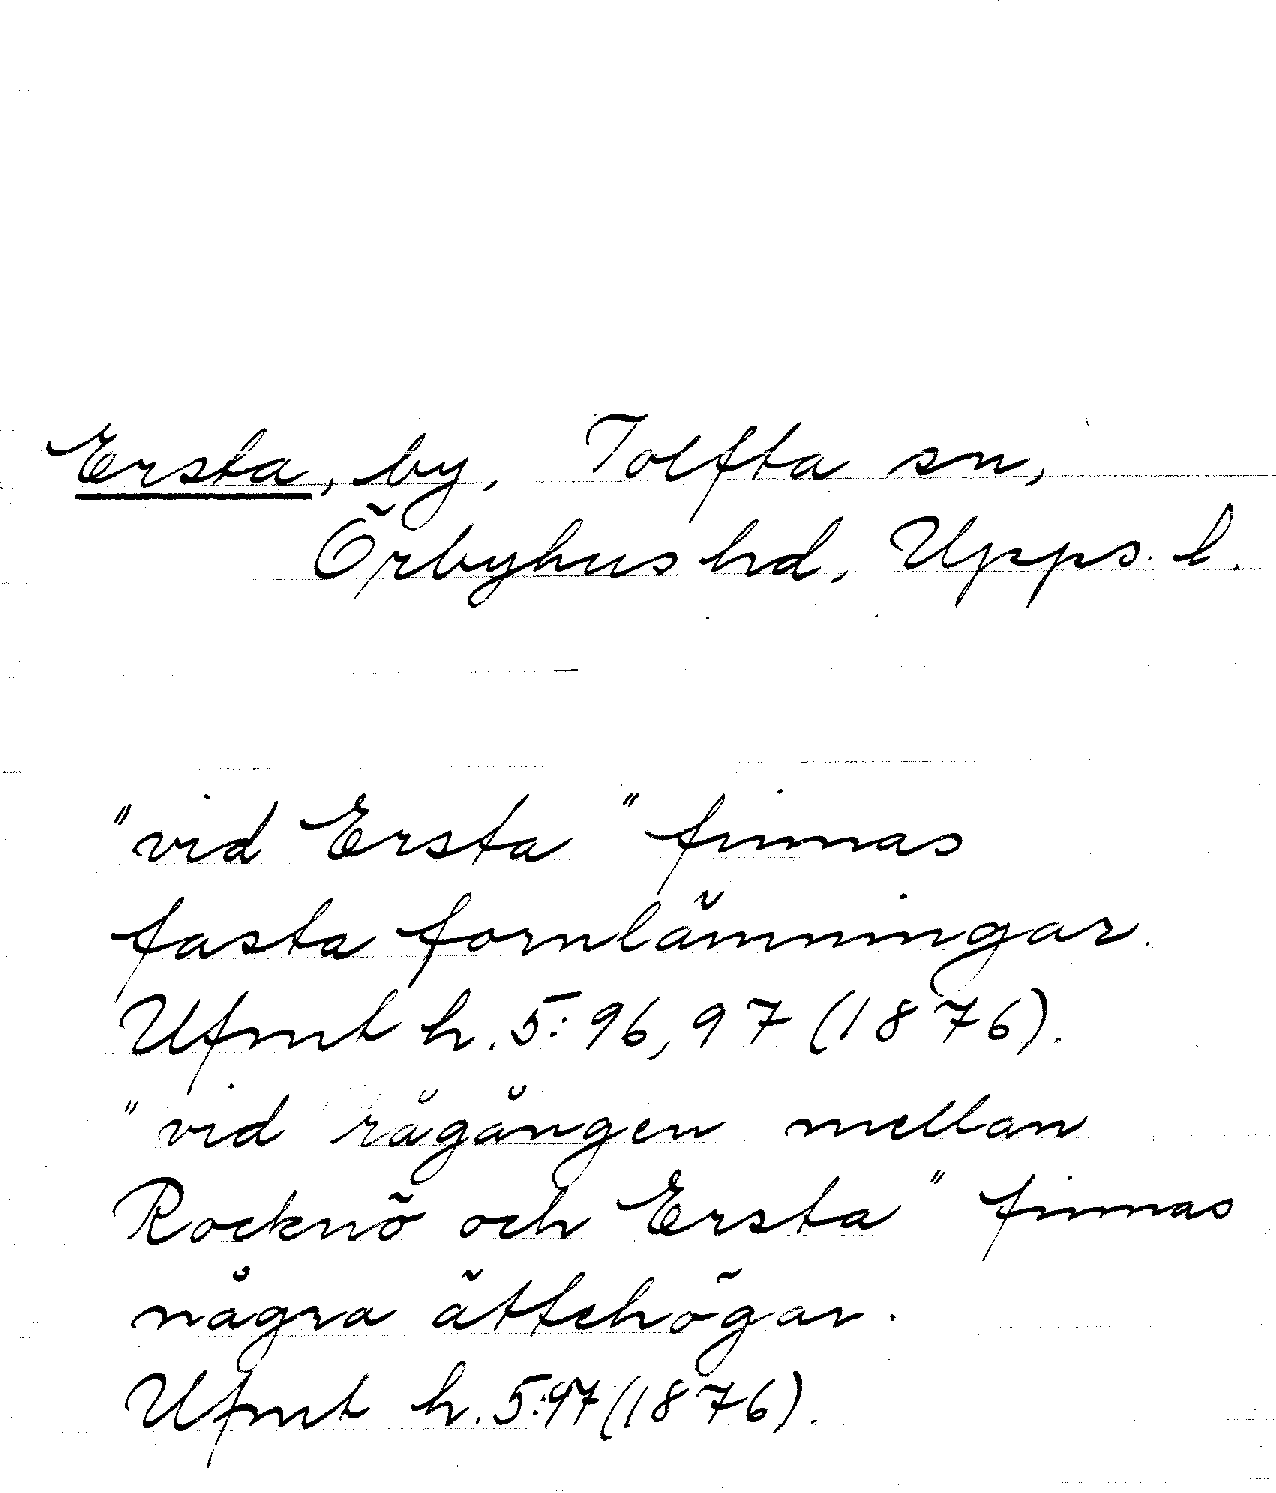 Ersta, by, Tolfta sn,
Örbyhus hd, Upps. l.
"vid Ersta" finnas
fasta fornlämningar.
Ufmt h. 5: 96, 97 (1876).
"vid rågången mellan
Rocknö och Ersta" finnas
några ättehögar.
Ufmt h. 5:97 (1876).